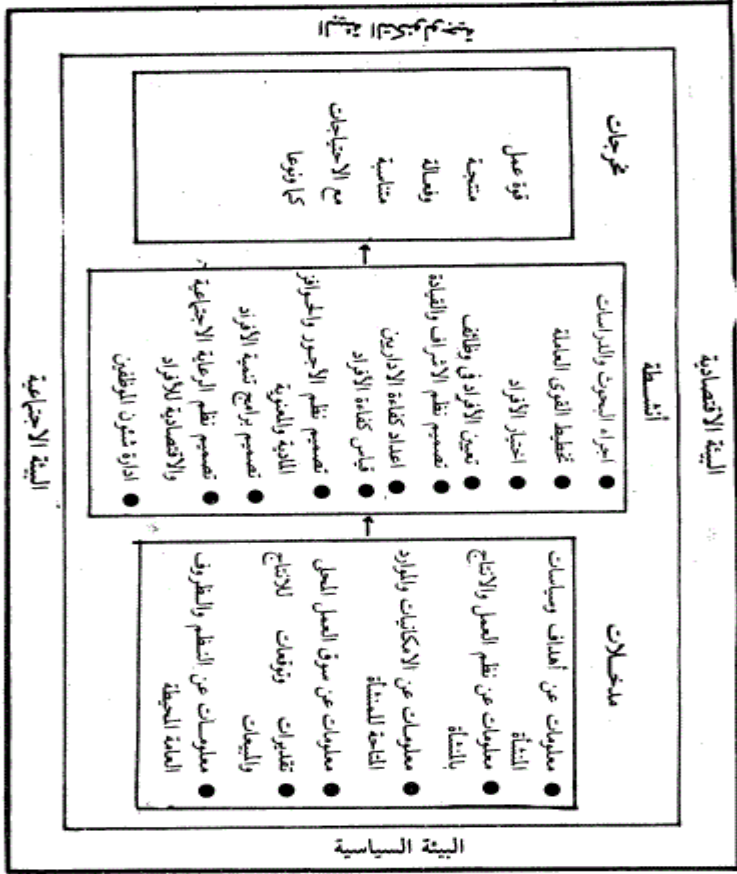 البيئة الاقتصادية
مدخلات
معلومات عن أهداف وسياسات
المنشأة
معلومات عن نظم العمل والانتاج
بالمنشأة
معلومات عن الامكانيات والموارد
المتاحة للمنشأة
معلومات عن سوق العمل المحلى
تقديرات وتوقعات للانتاج
والمبيعات
معلومات عن النظم والظروف
العامة المحيطة
أنشطة
اجراء البحوث والدراسات
تخطيط القوى العاملة
اختيار الأفراد
تعين الأفراد فى وظائف
تصميم نظم الاشراف والقيادة
اعداد كفاءة الاداريين
قياس كفاءة الأفراد
تصميم نظم الأجور والحوافز
المادية والمعنوية
تصميم برامج تنمية الأفراد
تصميم نظم الرعاية الاجتماعية
والاقتصادية للأفراد
ادارة شئون الموظفين
مخرجات
قوة عمل
منتجة
وفعالة
متناسبة
مع الاحتياجات
كما ونوعا
البيئة السياسية
البيئة التكنولوجية
البيئة الاجتماعية